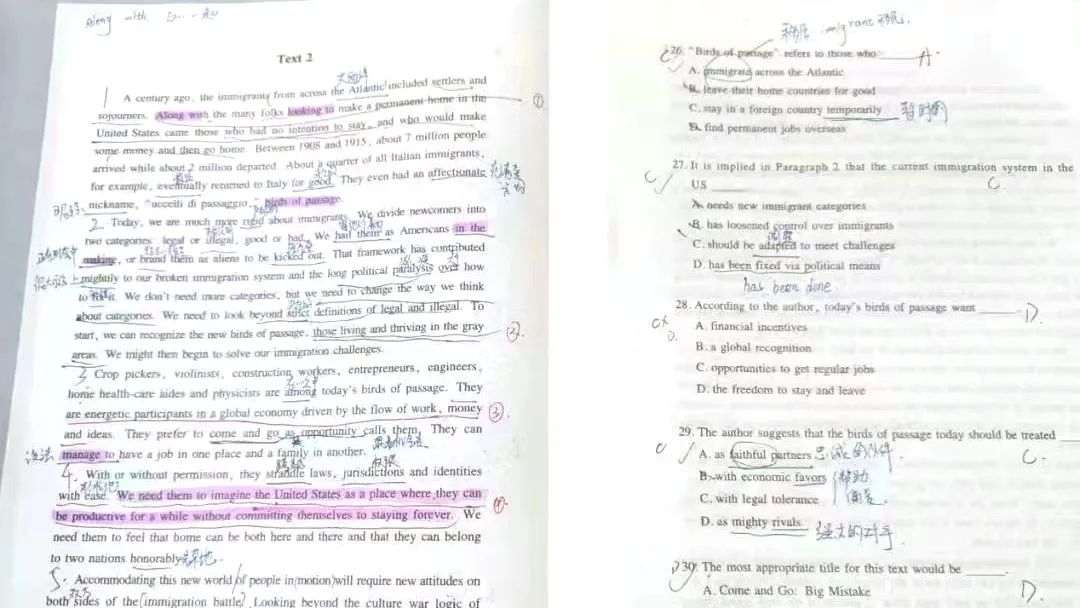 Along with 与…一起
Text 2
大西洋
A century ago, the immigrants from across the Atlantic included settlers and
sojourners. Along with the many folks looking to make a permanent home in the
United States came those who had no intention to stay, and who would make
some money and then go home. Between 1908 and 1915, about 7 million people
arrived while about 2 million departed. About a quarter of all Italian immigrants,
for example, eventually returned to Italy for good. They even had an affectionate
nickname, "uccelli di passaggio," birds of passage.
2 Today, we are much more rigid about immigrants. We divide newcomers into
two categories: legal or illegal, good or bad. We hail them as Americans in the
making, or brand them as aliens to be kicked out. That framework has contributed
mightly to our broken immigration system and the long political paralysis over how
to fix it. We don't need more categories, but we need to change the way we think
about categories. We need to look beyond strict definitions of legal and illegal. To
start, we can recognize the new birds of passage, those living and thriving in the gray
areas. We might then begin to solve our immigration challenges.
3 Crop pickers, violinists, construction workers, entrepreneurs, engineers,
home health-care aides and physicists are among today's birds of passage. They
are energetic participants in a global economy driven by the flow of work, money
and ideas. They prefer to come and go as opportunity calls them. They can
manage to have a job in one place and a family in another.
4. With or without permission, they straddle laws, jurisdictions and identities
with ease. We need them to imagine the United States as a place where they can
be productive for a while without committing themselves to staying forever. We
need them to feel that home can be both here and there and that they can belong
to two nations honorably.
5. Accommodating this new world of people in motion will require new attitudes on
both sides of the immigration battle. Looking beyond the culture war logic of
① ② ③ ④
immigrant 移民.
26. "Birds of passage" refers to those who ____ A.
A. immigrate across the Atlantic
B. leave their home countries for good
C. stay in a foreign country temporarily 暂时的
D. find permanent jobs overseas
27. It is implied in Paragraph 2 that the current immigration system in the
US ____ C.
A. needs new immigrant categories
B. has loosened control over immigrants
C. should be adapted to meet challenges
D. has been fixed via political means
has been done
28. According to the author, today's birds of passage want ____ D.
A. financial incentives
B. a global recognition
C. opportunities to get regular jobs
D. the freedom to stay and leave
29. The author suggests that the birds of passage today should be treated ____
A. as faithful partners 忠诚的伙伴 C.
B. with economic favors
C. with legal tolerance
D. as mighty rivals 强大的对手
30. The most appropriate title for this text would be ____.
A. Come and Go: Big Mistake D.